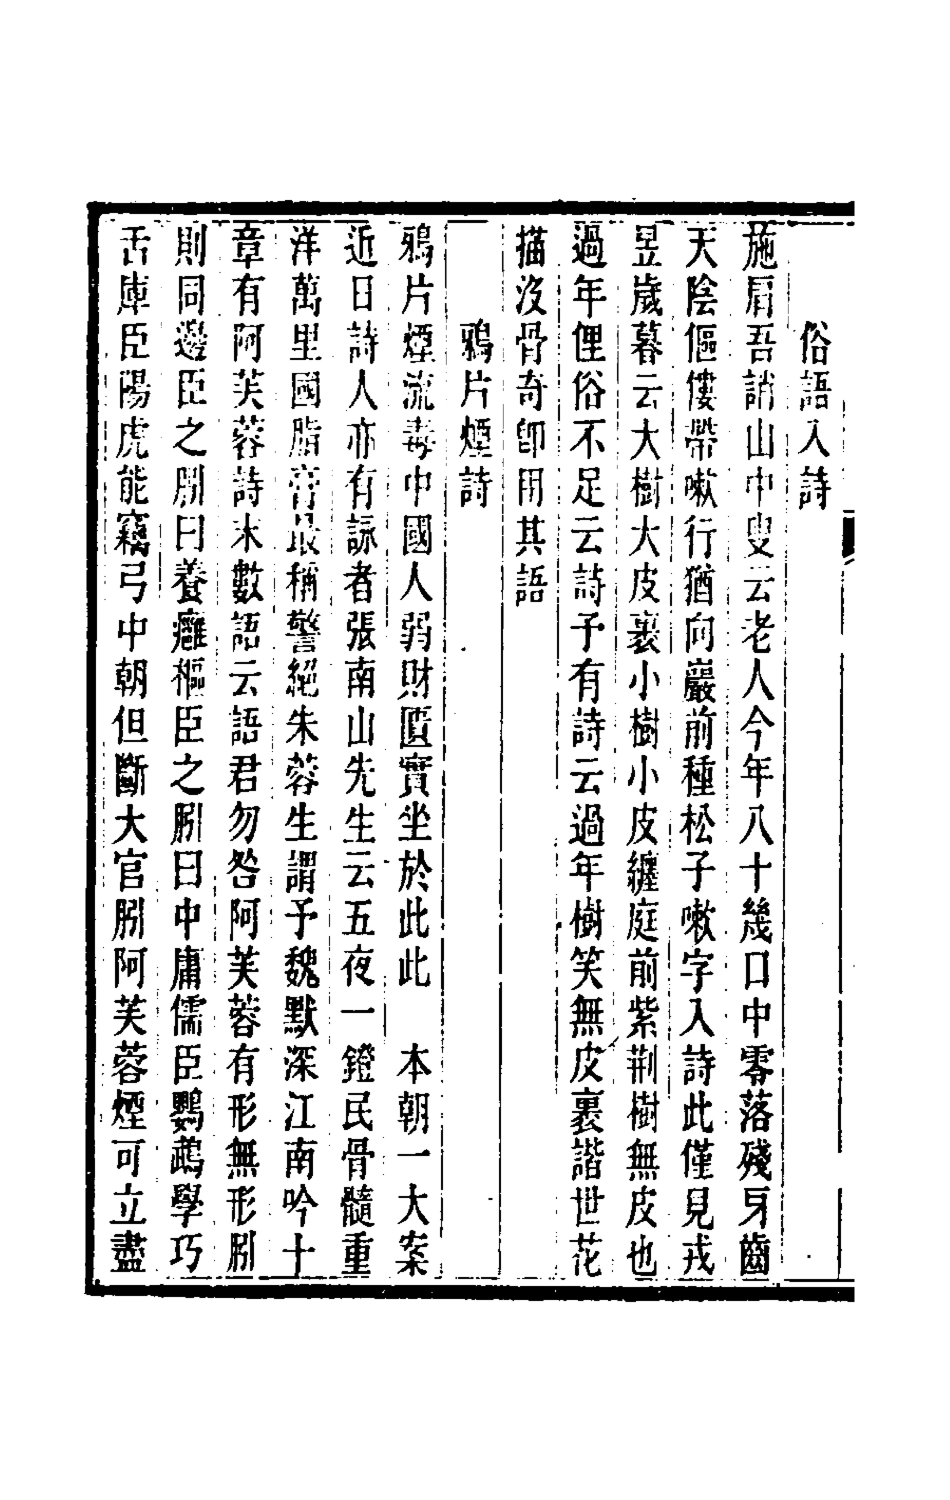 俗語入詩
施肩吾誚山中叟云老人今年八十幾口中零落殘牙齒
天陰傴僂帶嗽行猶向巖前種松子嗽字入詩此僅見戎
昱歲暮云大樹大皮裹小樹小皮纏庭前紫荆樹無皮也
過年俚俗不足云詩予有詩云過年樹笑無皮裹諧世花
描沒骨奇卽用其語
鴉片煙詩
鴉片煙流毒中國人弱財匱實坐於此此　本朝一大案
近日詩人亦有詠者張南山先生云五夜一鐙民骨髓重
洋萬里國脂膏最稱警絕朱蓉生謂予魏默深江南吟十
章有阿芙蓉詩末數語云語君勿咎阿芙蓉有形無形䏰
則同邊臣之䏰曰養癰樞臣之䏰曰中庸儒臣鸚鵡學巧
舌庫臣陽虎能竊弓中朝但斷大官䏰阿芙蓉煙可立盡